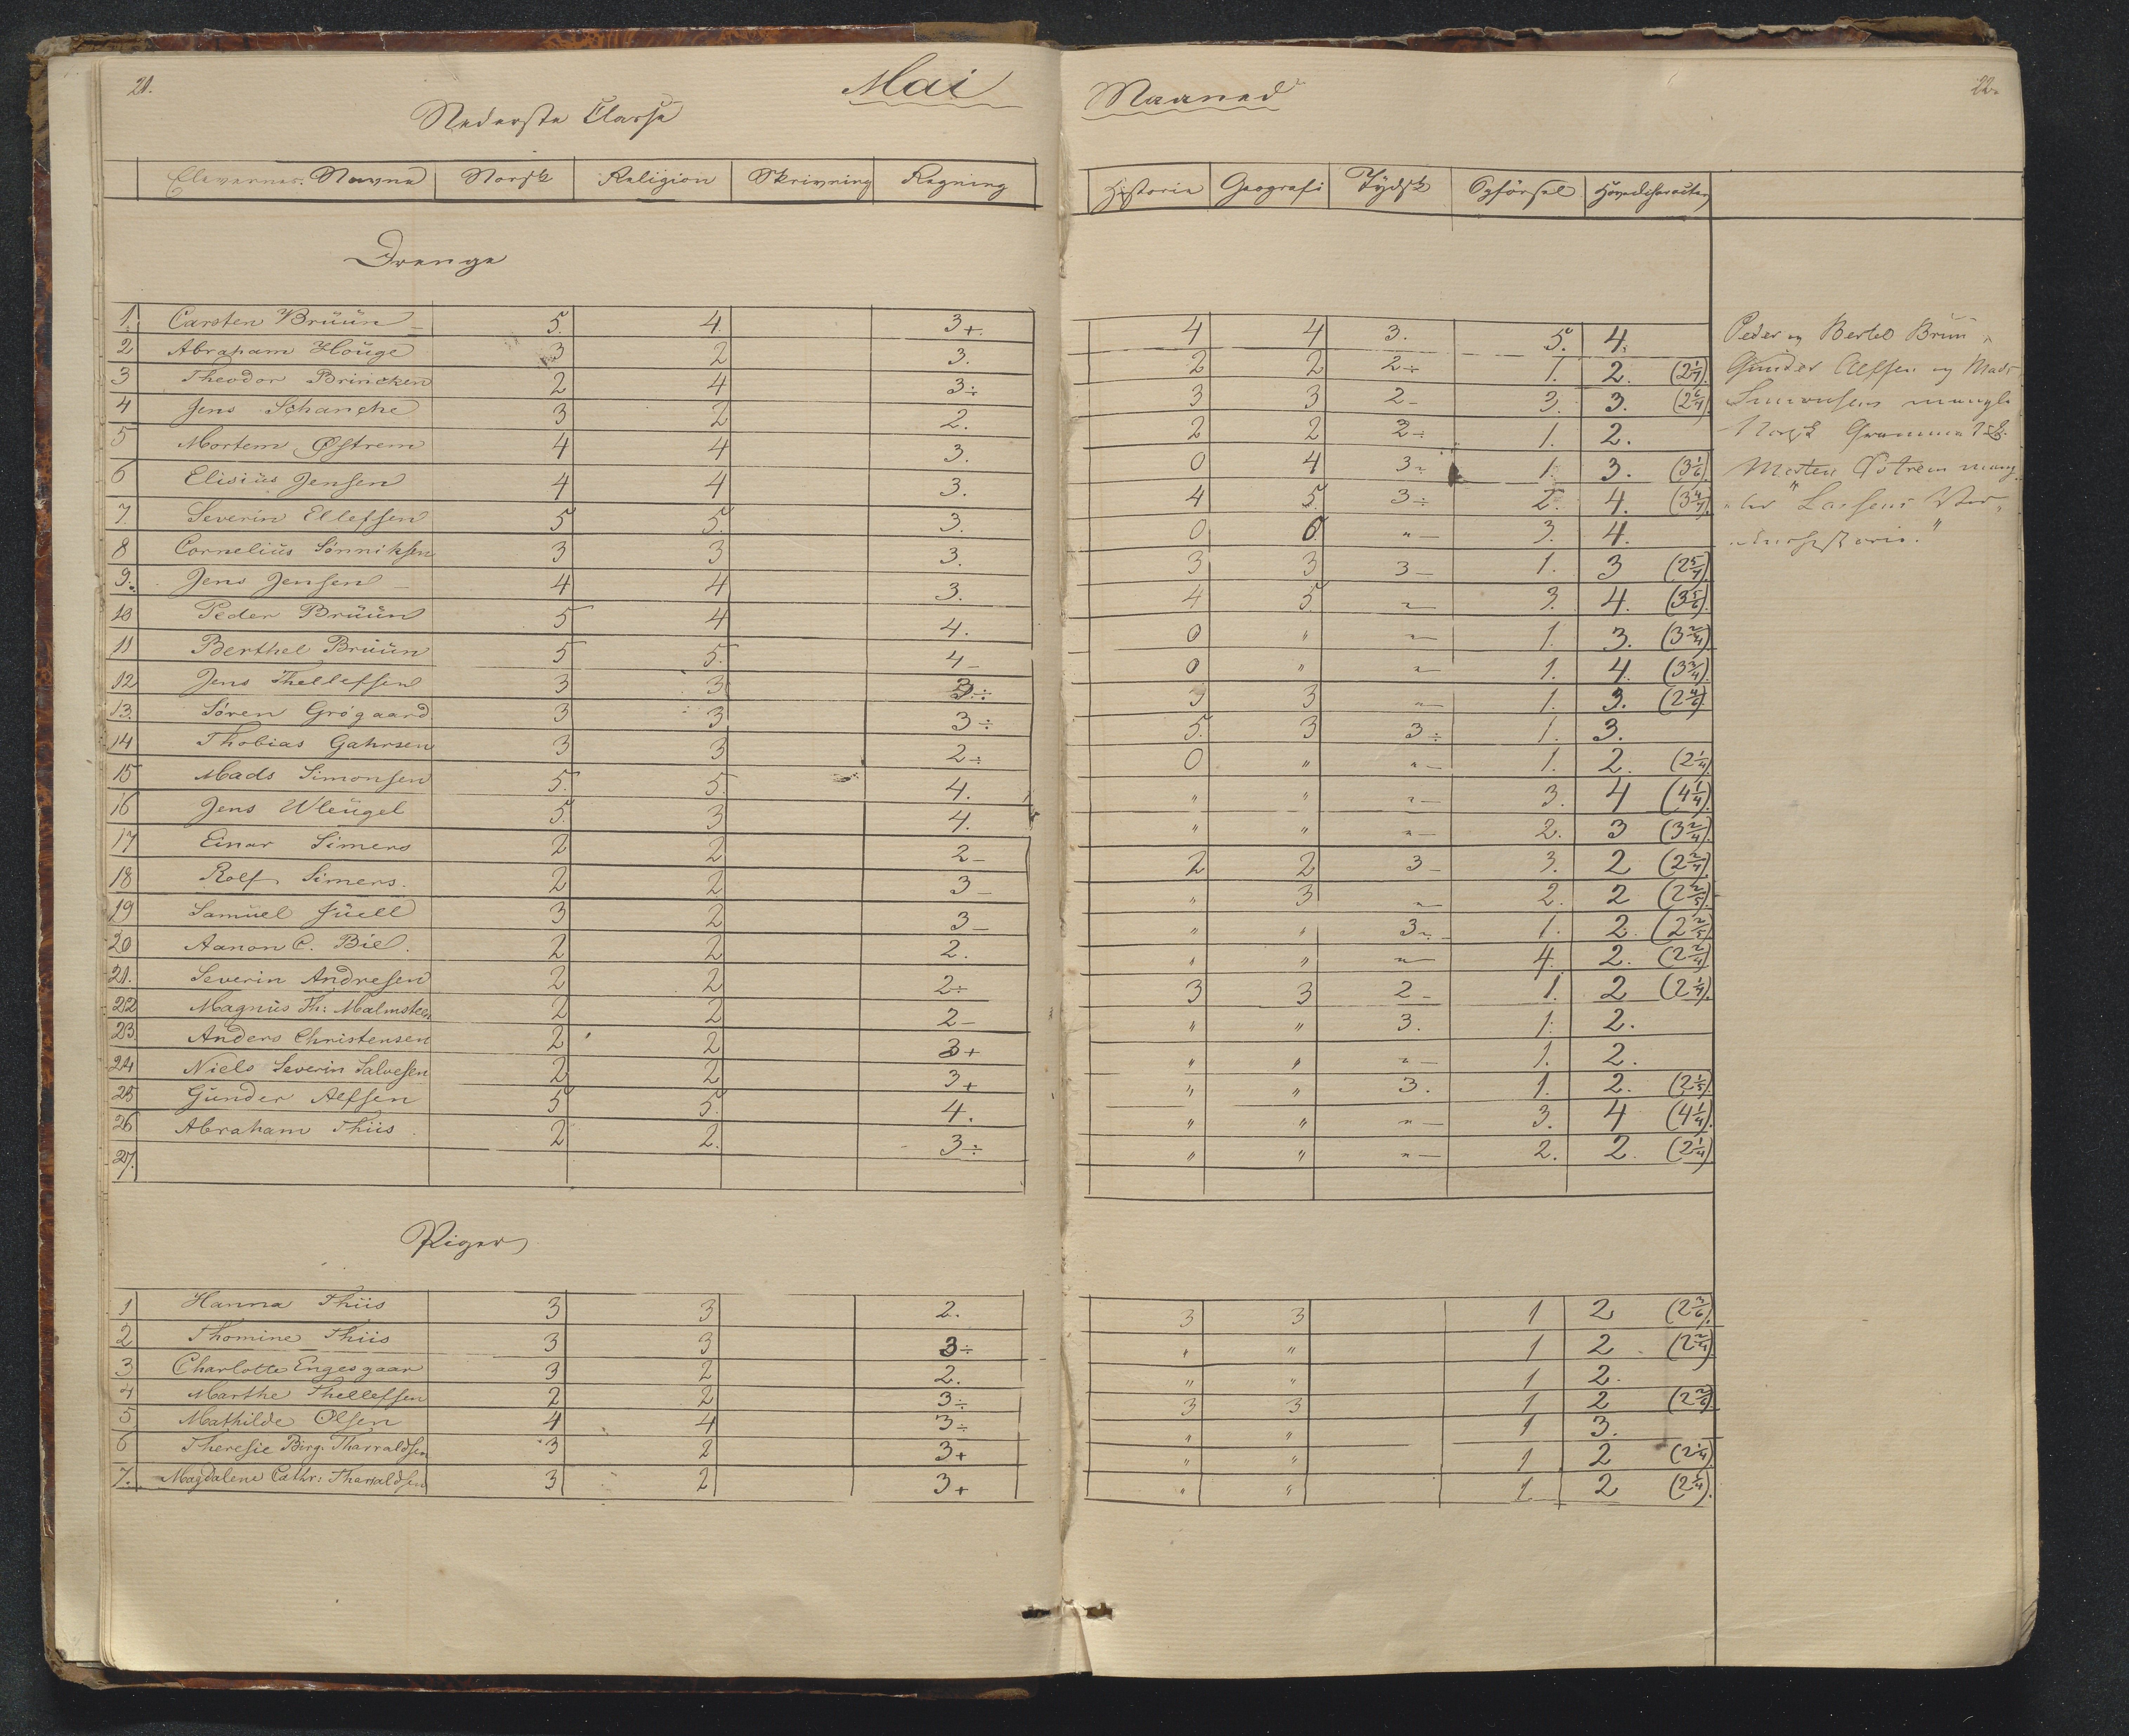 21.
Mai
Maaned
22.
Nederste Classe
Elevernes Navne Norsk Religion Skrivning Regning Historie Geografi Tydsk Opførsel Hovedcharacter
Drenge
1. Carsten Brüün 5. 4. 3+. 4 4 3. 5. 4.
2 Abraham Hoüge 3 2 3. 2 2 2÷ 1. 2. (2 1/7).
3 Theodor Brincken 2 4 3÷ 3 3 2- 3. 3. (2 6/7).
4 Jens Schanche 3 2 2. 2 2 2÷ 1. 2.
5 Mortem Østrem 4 4 3. 0 4 3÷ 1. 3. (3 1/6).
6 Elisiüs Jensen 4 4 3. 4 5. 3÷ 2. 4. (3 4/7).
7. Severin Ellefsen 5 5. 3. 0 0 "- 3. 4.
8 Corneliüs Sönniksen 3 3 3. 3 3 3- 1. 3 (2 5/7).
9. Jens Jensen 4 4 3. 4 5 "- 3. 4. (3 5/6).
10 Peder Brüün 5 4 4. 0 " "- 1. 3. (3 2/4).
11 Berthel Brüün 5 5. 4- 0 " "- 1. 4. (3 3/4).
12 Jens Thellefsen 3 3 3÷ 3 3 "- 1. 3. (2 4/6).
13. Sören Grögaard 3 3 3÷ 5. 3 3÷ 1. 3.
14 Thobias Gahrsen 3 3 2÷ 0 " "- 1. 2. (2 1/4).
15 Mads Simonsen 5. 5. 4. " " "- 3. 4 (4 1/4).
16 Jens Wleügel 5. 3 4. " " "- 2. 3 (3 2/4).
17 Einar Simers 2 2 2- 2 2 3- 3. 2 (2 2/7).
18 Rolf Simers. 2 2 3- " 3 "- 2. 2 (2 2/5).
19 Samüel Jüell 3 2 3- " " 3÷- 1. 2. (2 2/5).
20 Aanon C. Bie. 2 2 2. " " "- 4. 2. (2 2/4)
21. Severin Andresen 2 2 2÷ 3 3 2- 1. 2 (2 1/7).
22 Magnüs Th: Malmsten 2 2 2- " " 3. 1. 2.
23. Anders Christensen 2 2 3+ " " "- 1. 2.
24 Niels Severin Salvesen 2 2 3+ " " 3. 1. 2. (2 1/5).
25 Günder Alfsen 5 5. 4. " " "- 3. 4 (4 1/4).
26 Abraham Thiis 2 2. 3÷ " " "- 2. 2. (2 1/4).
27.
Peder og Bertel Brun
Gunder Alfsen og Mads
Simonsen mangle
Norsk Grammatik.
Morten Østrem mang
ler "Lassens Ver
denshistorie."
Piger
1 Hanna Thiis 3 3 2. 3 3 1 2. (2 3/6).
2 Thomine Thiis 3 3 3÷ " " 1 2 (2 2/4)
3 Charlotte Engesgaar 3 2 2. " " 1 2.
4 Marthe Thellefsen 2 2 3÷ 3 3 1 2 (2 2/6)
5 Mathilde Olsen 4 4 3÷ " " 1 3.
6 Theresie Birg. Tharraldsen 3 2 3+ " " 1 2 (2 1/4)
7. Magdalene Cathr: Tharraldsen 3 2 3+ " " 1 2 (2 1/4).